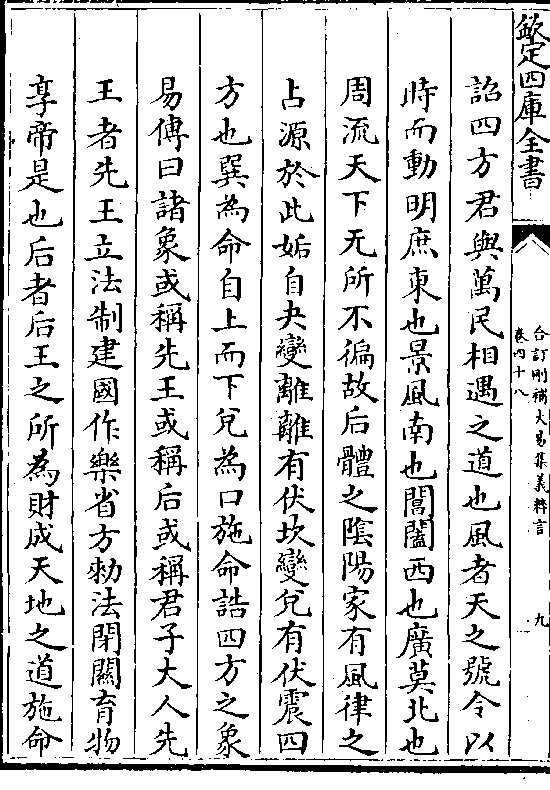 欽定四庫全書
合訂刪補大易集義粹言
卷四十八
九
詔四方君與萬民相遇之道也風者天之號令以
時而動明庶東也景風南也閶闔西也廣莫北也
周流天下无所不徧故后體之陰陽家有風律之
占源於此姤自夬變離離有伏坎變兌有伏震四
方也巽為命自上而下兌為口施命誥四方之象
易傳曰諸象或稱先王或稱后或稱君子大人先
王者先王立法制建國作樂省方勅法閉關育物
享帝是也后者后王之所為財成天地之道施命